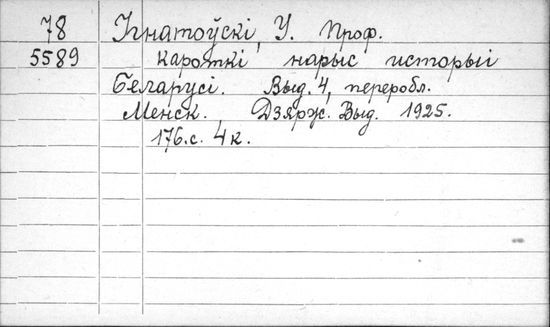 78 Ігнатоўскі, У. Проф.
5589 Кароткі нарыс исторыі
Беларусі. Выд. 4, переробл.
Менск. Дзярж. Выд. 1925.
176.с. 4к.